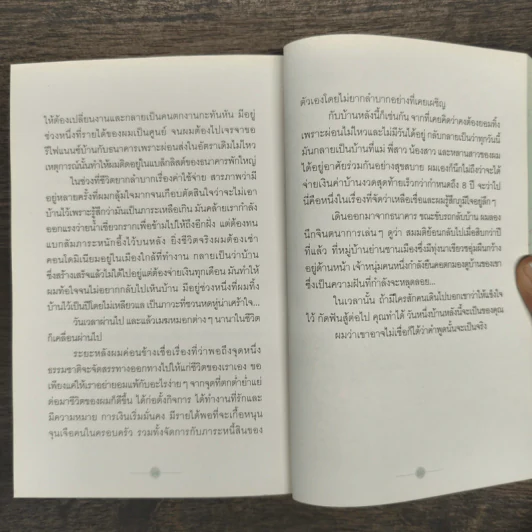 ให้ต้องเปลี่ยนงานและกลายเป็นคนตกงานกะทันหัน มีอยู่
ช่วงหนึ่งที่รายได้ของผมเป็นศูนย์ จนผมต้องไปเจรจาขอ
รีไฟแนนซ์บ้านกับธนาคารเพราะผ่อนส่งในอัตราเดิมไม่ไหว
เหตุการณ์นั้นทำให้ผมติดอยู่ในแบล็กลิสต์ของธนาคารพักใหญ่
ในช่วงที่ชีวิตยากลำบากเรื่องค่าใช้จ่าย สารภาพว่ามี
อยู่หลายครั้งที่ผมกลุ้มใจมากจนเกือบตัดสินใจว่าจะไม่เอา
บ้านไว้เพราะรู้สึกว่ามันเป็นภาระเหลือเกิน มันคล้ายเรากำลัง
ออกแรงว่ายน้ำเชี่ยวกรากเพื่อข้ามไปให้ถึงอีกฝั่ง แต่ต้องทน
แบกสัมภาระหนักอึ้งไว้บนหลัง ยิ่งชีวิตจริงผมต้องเช่า
คอนโดมิเนียมอยู่ในเมืองใกล้ที่ทำงาน กลายเป็นว่าบ้าน
ซึ่งสร้างเสร็จแล้วไม่ได้ไปอยู่แต่ต้องจ่ายเงินทุกเดือน มันทำให้
ผมท้อใจจนไม่อยากกลับไปเห็นบ้าน มีอยู่ช่วงหนึ่งที่ผมทิ้ง
บ้านไว้เป็นปีโดยไม่เหลียวแล เป็นภาวะที่ชวนหดหู่น่าเศร้าใจ...
วันเวลาผ่านไป และแล้วเมฆหมอกต่างๆ นานาในชีวิต
ก็เคลื่อนผ่านไป
ระยะหลังผมค่อนข้างเชื่อเรื่องที่ว่าพอถึงจุดหนึ่ง
ธรรมชาติจะจัดสรรทางออกทางไปให้แก่ชีวิตของเราเอง ขอ
เพียงแค่ให้เราอย่ายอมแพ้กับอะไรง่ายๆ จากจุดที่ตกต่ำย่ำแย่
ต่อมาชีวิตของผมก็ดีขึ้น ได้ก่อตั้งกิจการ ได้ทำงานที่รักและ
มีความหมาย การเงินเริ่มมั่นคง มีรายได้พอที่จะเกื้อหนุน
จุนเจือคนในครอบครัว รวมทั้งจัดการกับภาระหนี้สินของ
ตัวเองโดยไม่ยากลำบากอย่างที่เคยเผชิญ
กับบ้านหลังนี้ก็เช่นกัน จากที่เคยคิดว่าคงต้องยอมทิ้ง
เพราะผ่อนไม่ไหวและไม่มีวันได้อยู่ กลับกลายเป็นว่าทุกวันนี้
มันกลายเป็นบ้านที่แม่ พี่สาว น้องสาว และหลานสาวของผม
ได้อยู่อาศัยร่วมกันอย่างสุขสบาย ผมเองก็นึกไม่ถึงว่าจะได้
จ่ายเงินค่าบ้านงวดสุดท้ายเร็วกว่ากำหนดถึง 8 ปี จะว่าไป
นี่คือหนึ่งในเรื่องที่จัดว่าเหลือเชื่อและผมรู้สึกภูมิใจอยู่ลึกๆ
เดินออกมาจากธนาคาร ขณะขับรถกลับบ้าน ผมลอง
นึกจินตนาการเล่นๆ ดูว่า สมมติย้อนกลับไปเมื่อสิบกว่าปี
ที่แล้ว ที่หมู่บ้านย่านชานเมืองซึ่งมีทุ่งนาเขียวชอุ่มผืนกว้าง
อยู่ด้านหน้า เจ้าหนุ่มคนหนึ่งกำลังยืนคอตกมองดูบ้านของเขา
ซึ่งเป็นความฝันที่กำลังจะหลุดลอย...
ในเวลานั้น ถ้ามีใครสักคนเดินไปบอกเขาว่าให้แข็งใจ
ไว้ กัดฟันสู้ต่อไป คุณทำได้ วันหนึ่งบ้านหลังนี้จะเป็นของคุณ
ผมว่าเขาอาจไม่เชื่อก็ได้ว่าคำพูดนั้นจะเป็นจริง